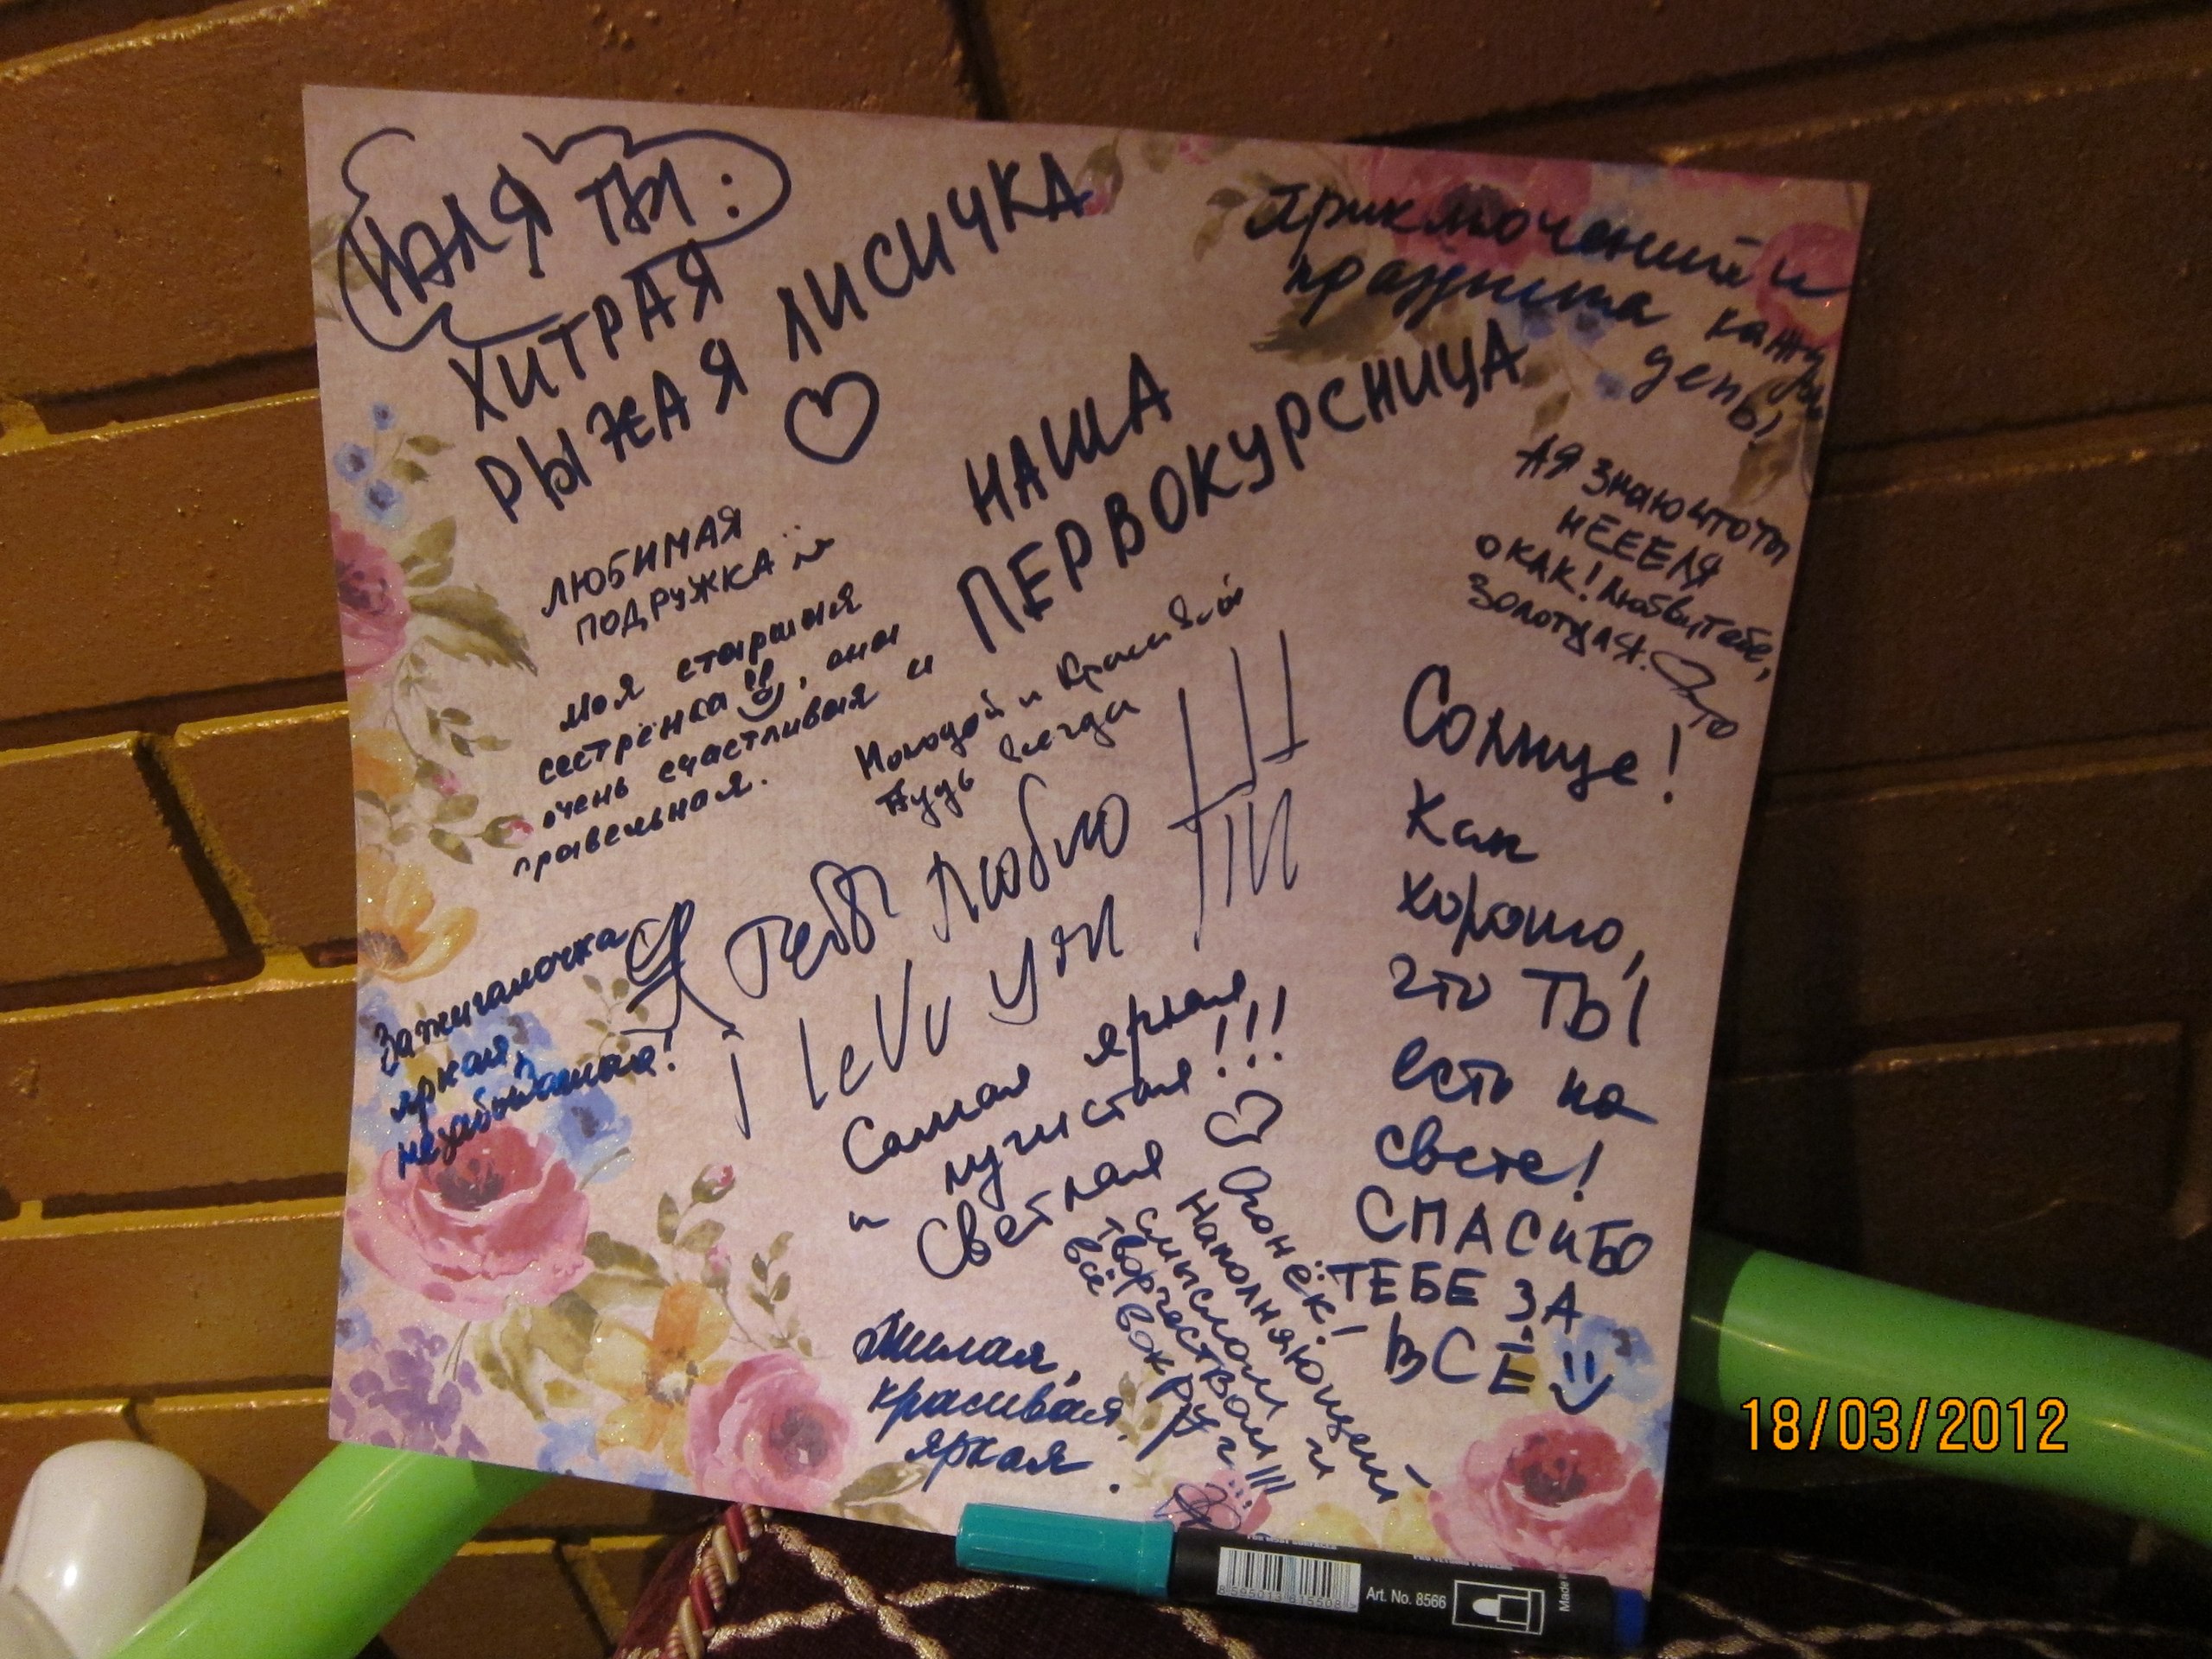 НАЛЯ ТЫ:
ХИТРАЯ
РЫЖАЯ ЛИСИЧКА
ЛЮБИМАЯ
ПОДРУЖКА
Моя старшая
сестрёнка, она
очень счастливая и
правельная.
НАША
ПЕРВОКУРСНИЦА
Приключений и
праздника каждый
день!
А Я ЗНАЮ ЧТО ТЫ
НЕЕЕЛЯ
О КАК! Люблю тебя,
Золотцая.
Молодой и Красивой
Будь всегда
Я тебя люблю
i leVu you
Зажигалочка
яркая,
незабываемая!
Самая яркая
лучистая!!!
и Светлая
Солнце!
Как
хорошо,
что ТЫ
есть на
свете!
СПАСИБО
ТЕБЕ ЗА
ВСЁ
Огонёк!
Наполняющий
смыслом и
творчеством
всё вокруг!!!
Милая,
красивая,
яркая.
18/03/2012
8595013615508
Art. No. 8566
Made in